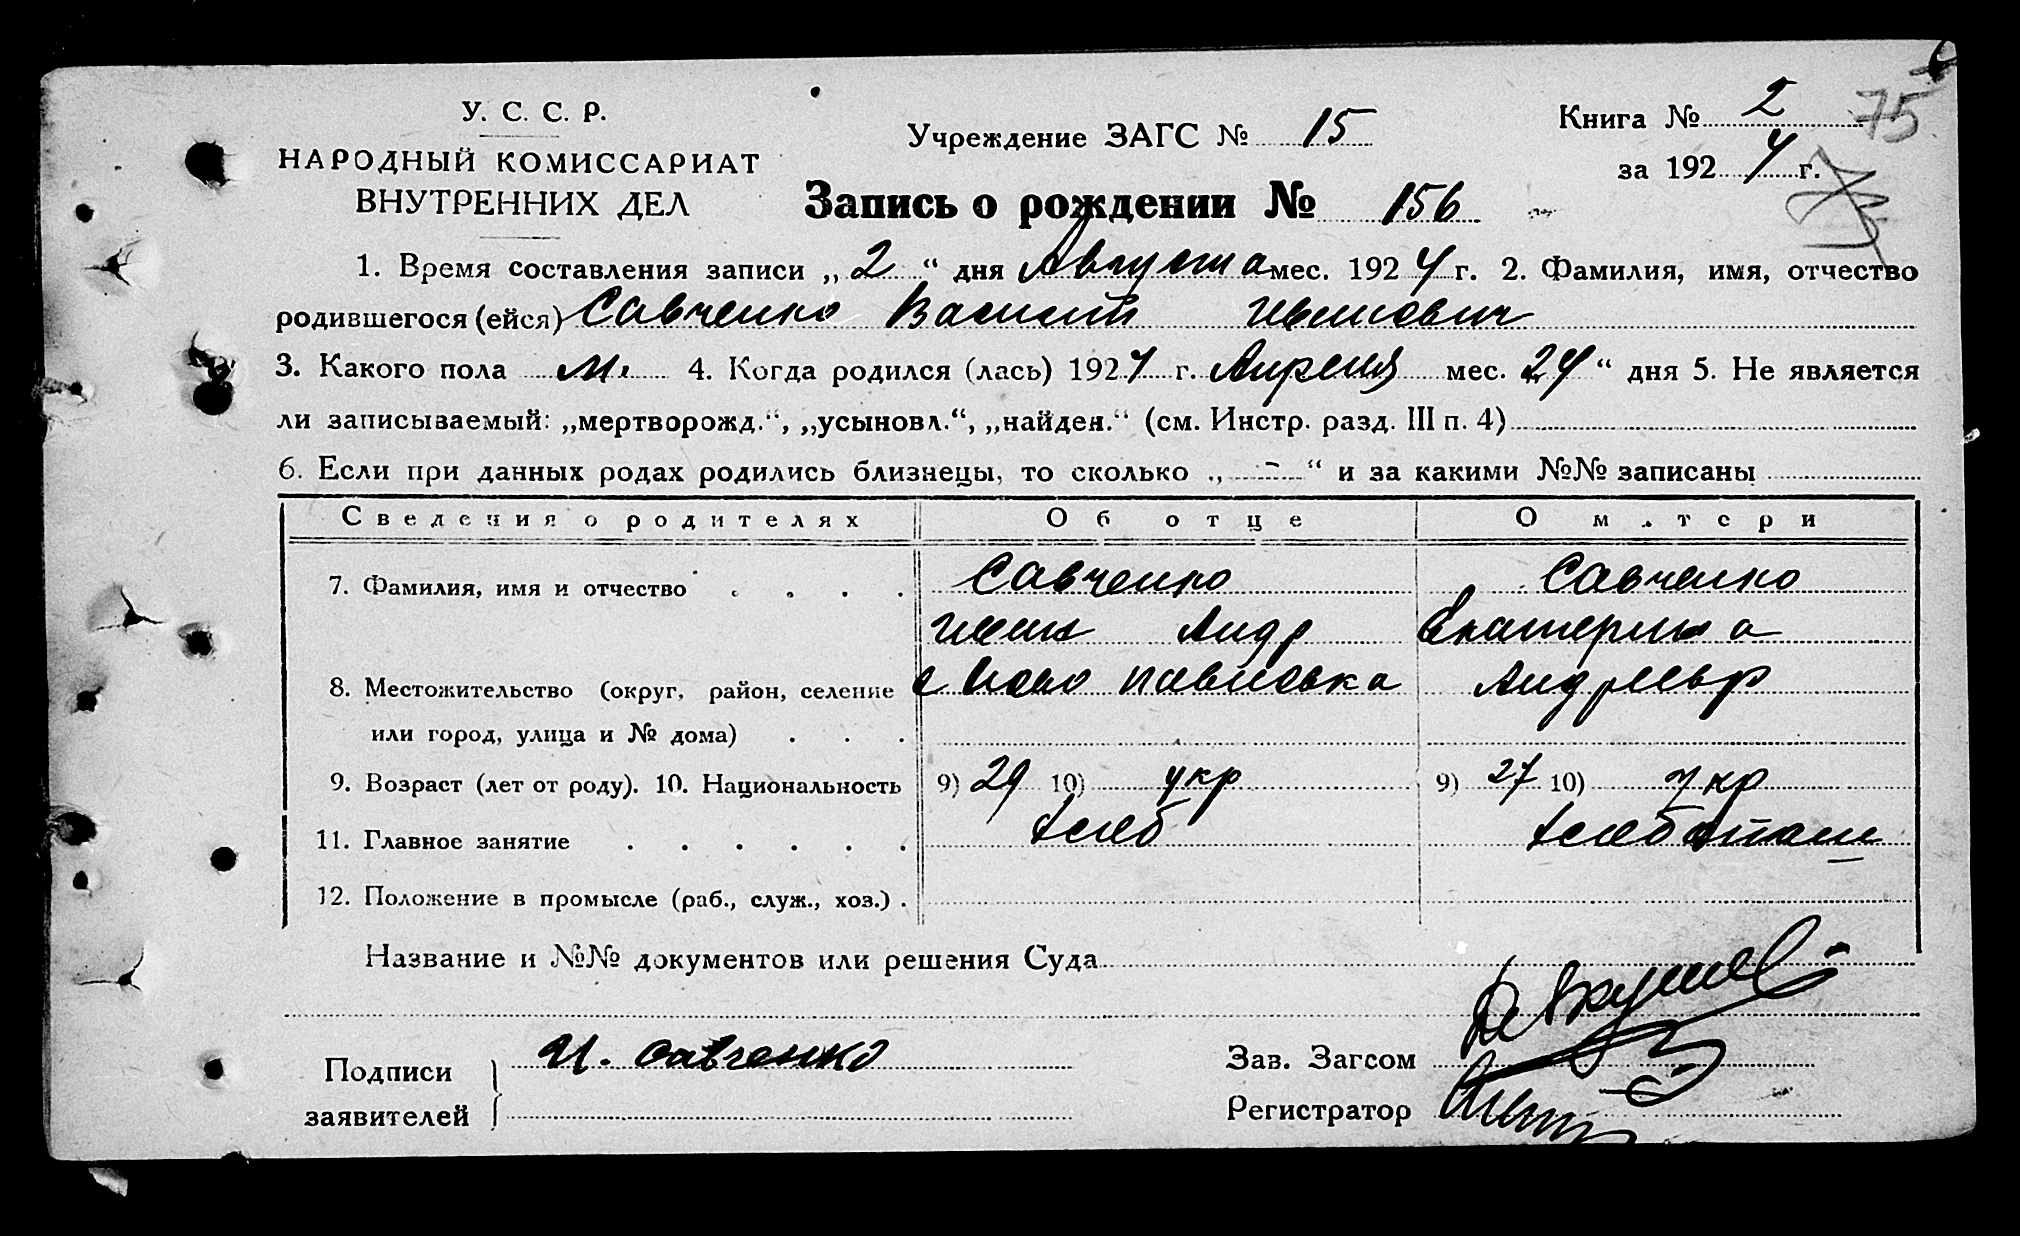 У. С. С. Р.
НАРОДНЫЙ КОМИССАРИАТ
ВНУТРЕННИХ ДЕЛ
Учреждение ЗАГС № 15
Книга № 2
75
за 1924 г.
Запись о рождении № 156
1. Время составления записи „ 2 “ дня Августа мес. 1924 г. 2. Фамилия, имя, отчество
родившегося (ейся) Савченко Василий Иванович
3. Какого пола м. 4. Когда родился (лась) 1924 г. Апреля мес. 24 “ дня 5. Не является
ли записываемый: „мертворожд.“, „усыновл.“, „найден.“ (см. Инстр. разд. III п. 4)
6. Если при данных родах родились близнецы, то сколько „ - “ и за какими №№ записаны
Сведения о родителях Об отце О матери
7. Фамилия, имя и отчество Савченко Савченко
Иван Андр Екатерина
8. Местожительство (округ, район, селение с Ново Павловка Андреевр
или город, улица и № дома)
9. Возраст (лет от роду). 10. Национальность 9) 29 10) укр 9) 27 10) укр
11. Главное занятие хлеб хлебопаш
12. Положение в промысле (раб., служ., хоз.)
Название и №№ документов или решения Суда
Подписи
заявителей
И. Савченко
Зав. Загсом
Регистратор